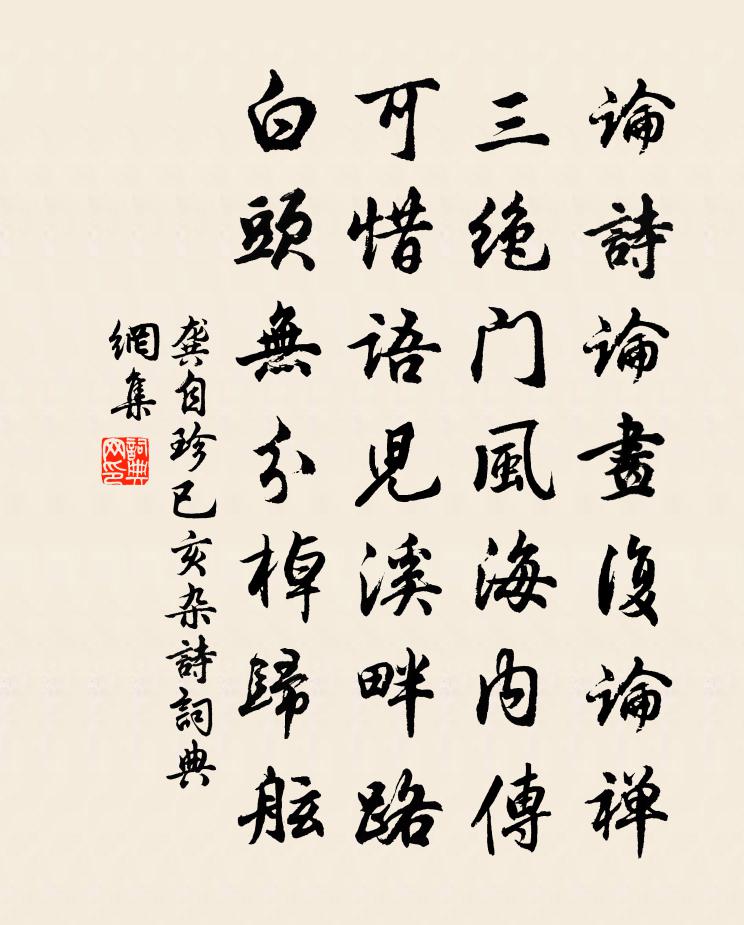 論詩論畫復論禅
三絶門風海内傳
可惜語児溪畔路
白頭無分棹歸舷
龔自珍已亥杂詩詞典
網集
詞典網印